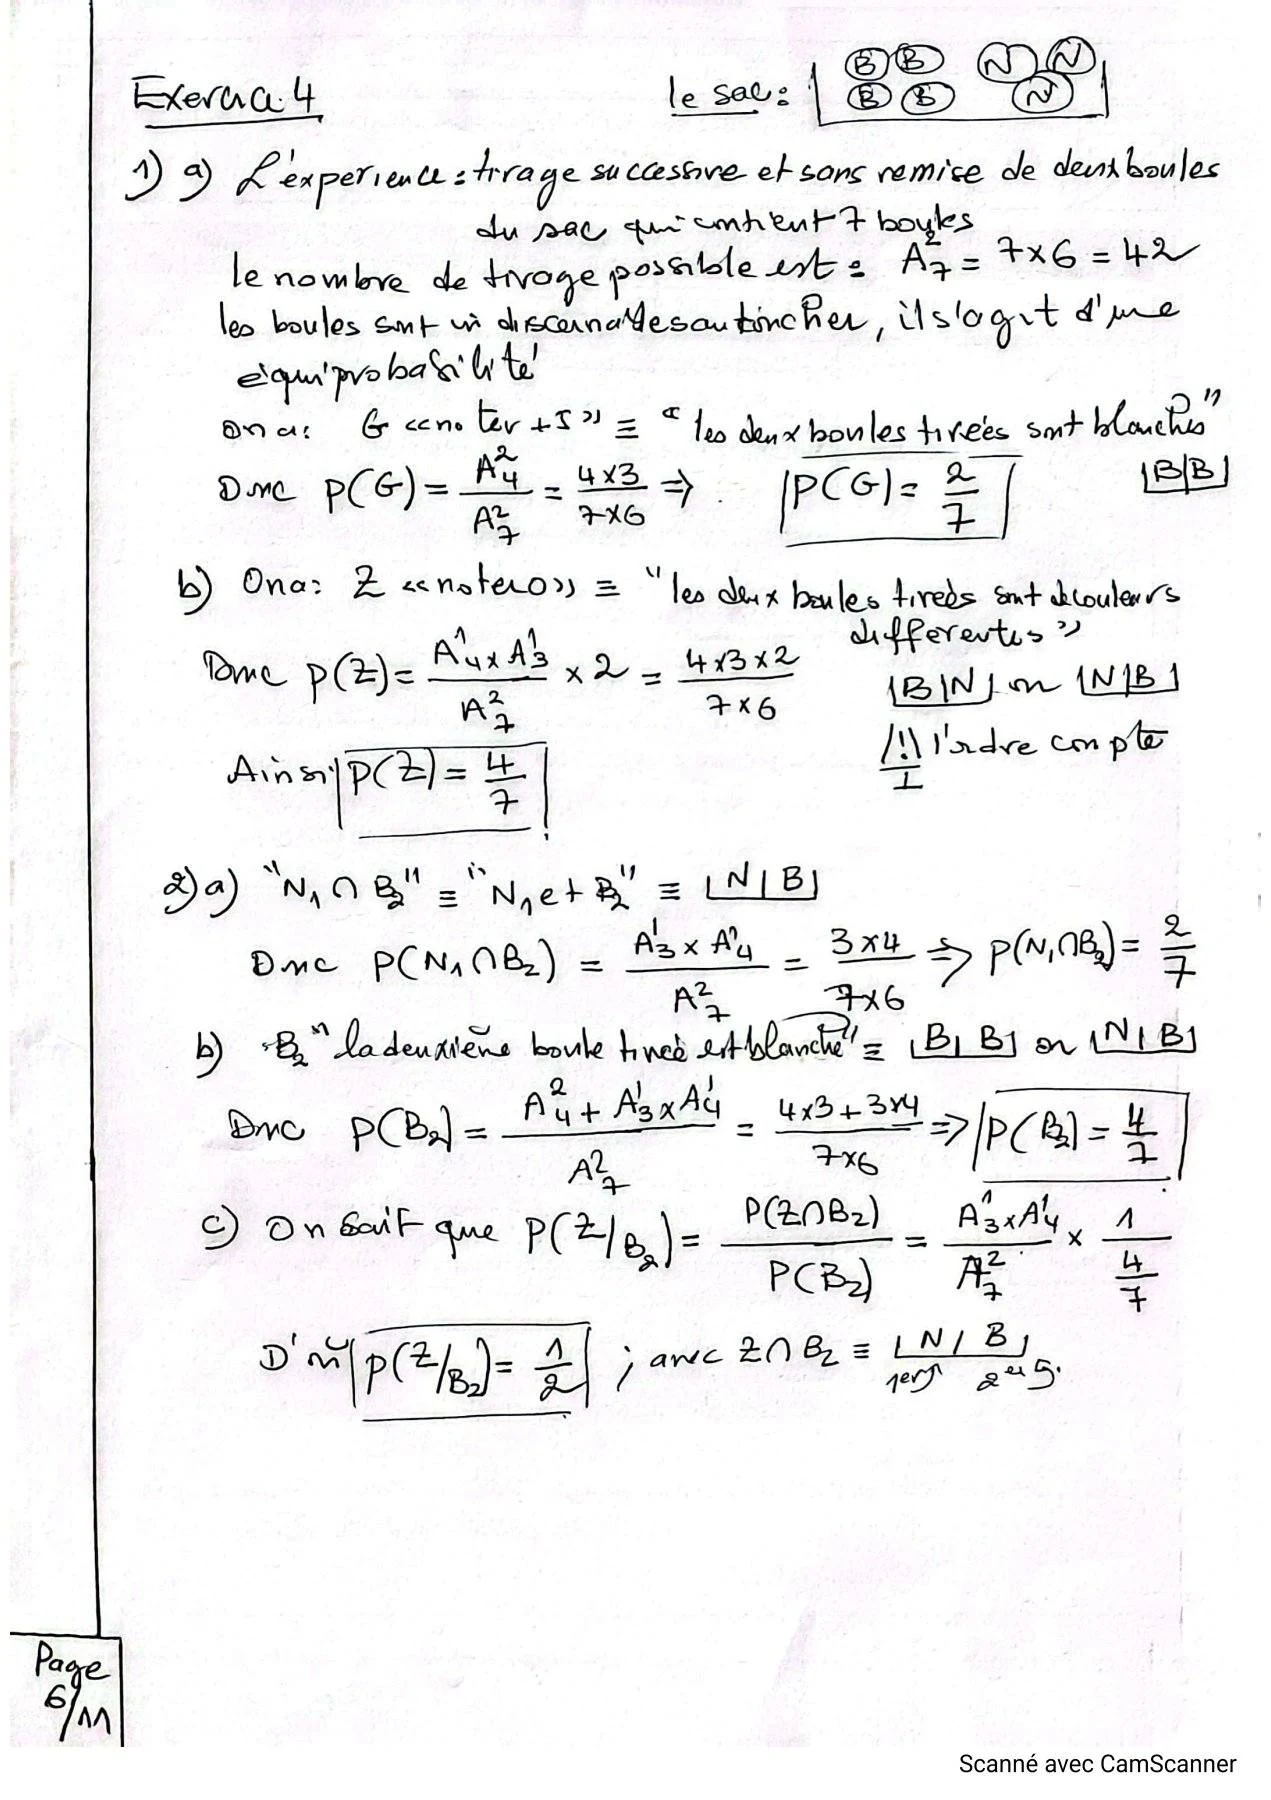 Exercice 4
le sac : B B N N
B B N
1) a) L'éxperience : tirage successive et sans remise de deux boules
du sac qui contient 7 boules
le nombre de tirage possible est : A₇² = 7×6 = 42
les boules sont indiscernables au toucher, il s'agit d'une
équiprobabilité
on a : G « noter +5 » ≡ “ les deux boules tireés sont blanches ”
Donc P(G) = A₄² / A₇² = 4×3 / 7×6 ⇒ P(G) = 2/7 |B|B|
b) On a : Z « noter 0 » ≡ “ les deux boules tireés sont de couleurs
differentes ”
Donc P(Z) = A₄¹ × A₃¹ / A₇² × 2 = 4×3×2 / 7×6 |B|N| ou |N|B|
/!\ l'ordre compte
Ainsi P(Z) = 4/7
2) a) “N₁ ∩ B₂” ≡ “N₁ et B₂” ≡ |N|B|
Donc P(N₁∩B₂) = A₃¹ × A₄¹ / A₇² = 3×4 / 7×6 ⇒ P(N₁∩B₂) = 2/7
b) B₂ “ la deuxième boule tireé est blanche” ≡ |B|B| ou |N|B|
Donc P(B₂) = A₄² + A₃¹ × A₄¹ / A₇² = 4×3 + 3×4 / 7×6 ⇒ P(B₂) = 4/7
c) On sait que P(Z/B₂) = P(Z∩B₂) / P(B₂) = A₃¹ × A₄¹ / A₇² × 1 / 4/7
D'où P(Z/B₂) = 1/2 ; avec Z∩B₂ ≡ |N|B|
Page
6/11
Scanné avec CamScanner